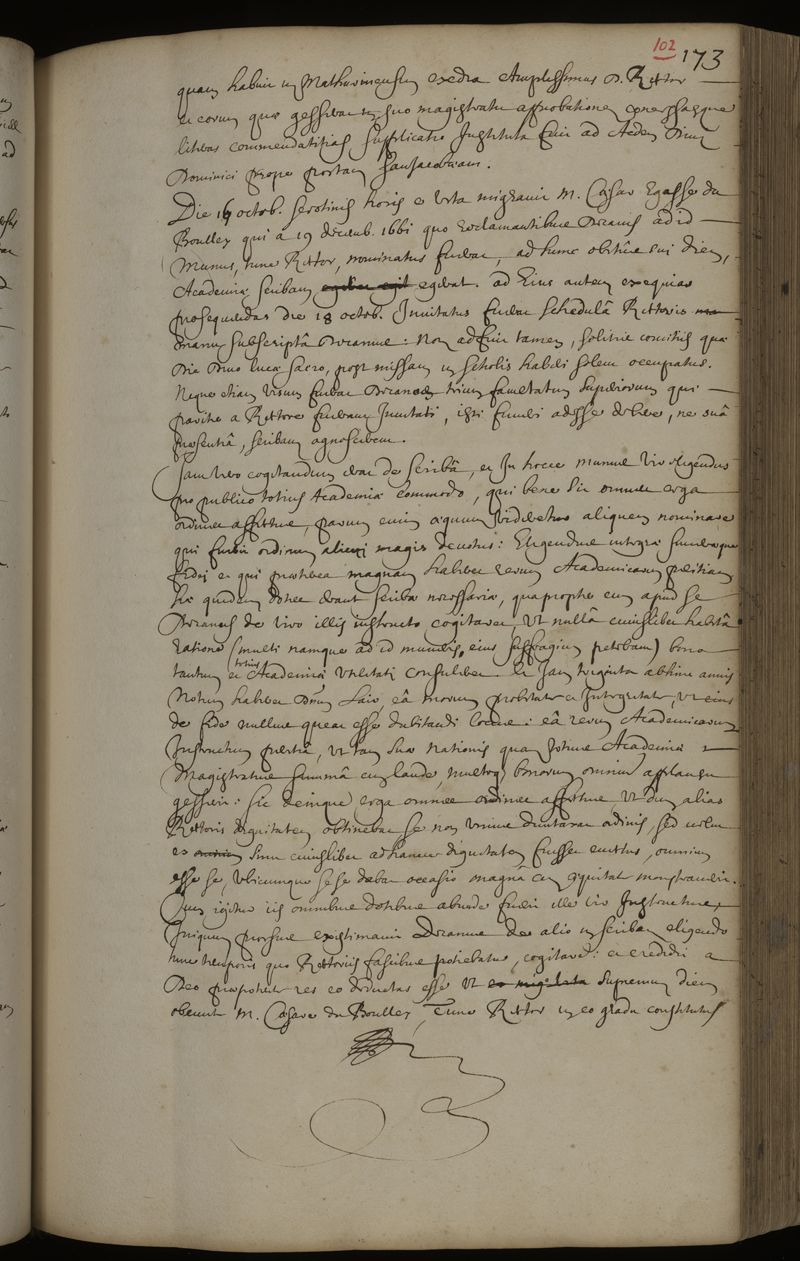 102 173
quam habuit in Mathurinensium exedra Amplissimus D. Rector
et eorum quae gesserat in suo magistratu approbationem
literas commendatitias supplicatio Instituta fuit ad Aedem Divi
Dominici prope portam San-jacobaeam.
Die 16 octob. serotinis horis e vita migravit M. Caesar Egasse du
Boulley qui a 19 decemb. 1661 quo reclamantibus Decanis ad id
Munus, tunc Rector, nominatus fuerat, ad hunc obitûs sui diem,
Academiae scribam egerat. ad Eius autem exequias
prosequendas die 18 octob. Invitatus fuerat schedulâ Rectoris
manu subscriptâ Decanus: Non adfuit tamen, solitis comitiis quae
Die Divo lucae sacro, post missam in scholis haberi solent occupatus.
Neque etiam visum fuerat Decanis trium facultatum superiorum qui
pariter a Rectore fuerant Invitati, isti funeri adesse debere, ne suâ
praesentiâ, scribam agnoscerent.
Jam vero cogitandum erat de scribâ, et In hocce munus vir eligendus
pro publico totius Academiae commodo, qui bene sit omnes erga
ordines affectus, parum enim aequum videretur aliquem nominare
qui fuerit ordinum alicui magis devotus: Eligendus integrae
fidei et qui praeterea magnam haberet rerum Academicarum peritiam
hae quidem dotes erant scribae necessariae, quapropter cum apud se
Decanus de viro illis instructo cogitaret, ut nullâ cuiuslibet habitâ
ratione (multi namque ad id muneris, eius suffragium petebant) bono
tantum et totius Academiae utilitati consuleret. Et Jam triginta abhinc annis
Notum haberet Dnum Lair, eâ morum probitate et Integritate, ut eius
de fide nullus queat esse dubitandi locus: eâ rerum Academicarum
Instructum peritiâ, ut tam suae nationis quam totius Academiae
Magistratus summâ cum laude, multoque bonorum omnium applausu
gesserit: sic denique erga omnes ordines affectus, ut dum alias
Rectoris dignitatem obtinebat se non unius duntaxat ordinis, sed
ex sinu cuiuslibet ad hancce dignitatem fuisset evectus, omnium
esse se, ubicumque sese dabat occasio magnâ cum aequitate monstraverit.
Cum igitur iis omnibus dotibus abunde fuerit ille vir Instructus,
Iniquum prorsus existimavit Decanus de alio in scribam eligendo
tunc temporis quo Rectoriis fascibus potiebatur, cogitare: et credidit a
Deo praepotente res eo deductas esse ut supremum diem
obeunte M. Caesare du Boulley, tunc Rector in eo gradu constitutus